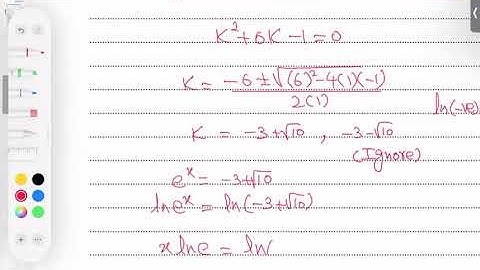 K²+6K-1=0
K = -6±√(6)²-4(1)(-1) / 2(1)
ln(-ve)
K = -3+√10 , -3-√10
(Ignore)
eˣ = -3+√10
ln eˣ = ln(-3+√10)
x ln e = ln